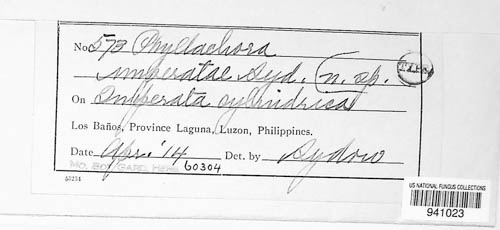 No. 573 Phyllachora
TYPE
imperatae Syd. n. sp.
On Imperata cylindrica
Los Baños, Province Laguna, Luzon, Philippines.
Date Apr. '14 Det. by Sydow
MO. BOT. GARD. HERB. 60304
53234
US NATIONAL FUNGUS COLLECTIONS
941023